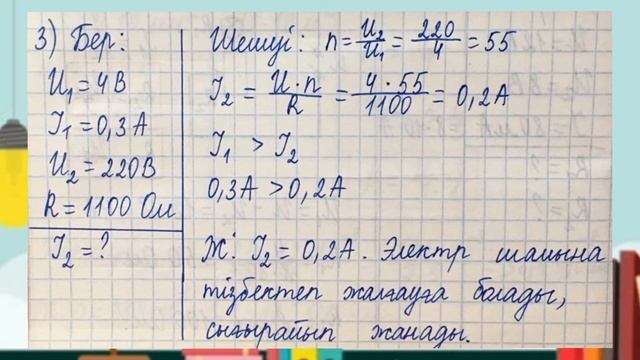 3) Бер:
U₁ = 4 В
I₁ = 0,3 А
U₂ = 220 В
R = 1100 Ом
I₂ = ?
Шешуі: n = U₂/U₁ = 220/4 = 55
I₂ = U·n/R = 4·55/1100 = 0,2 А
I₁ > I₂
0,3 А > 0,2 А
Ж: I₂ = 0,2 А. Электр шамына
тізбектеп жалғауға болады,
сығырайып жанады.